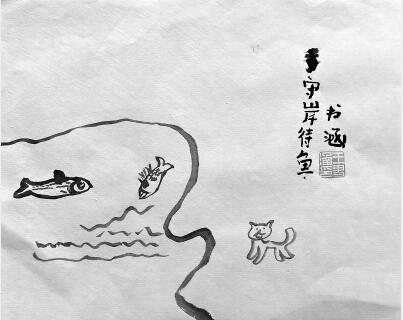 守岸待鱼
书涵